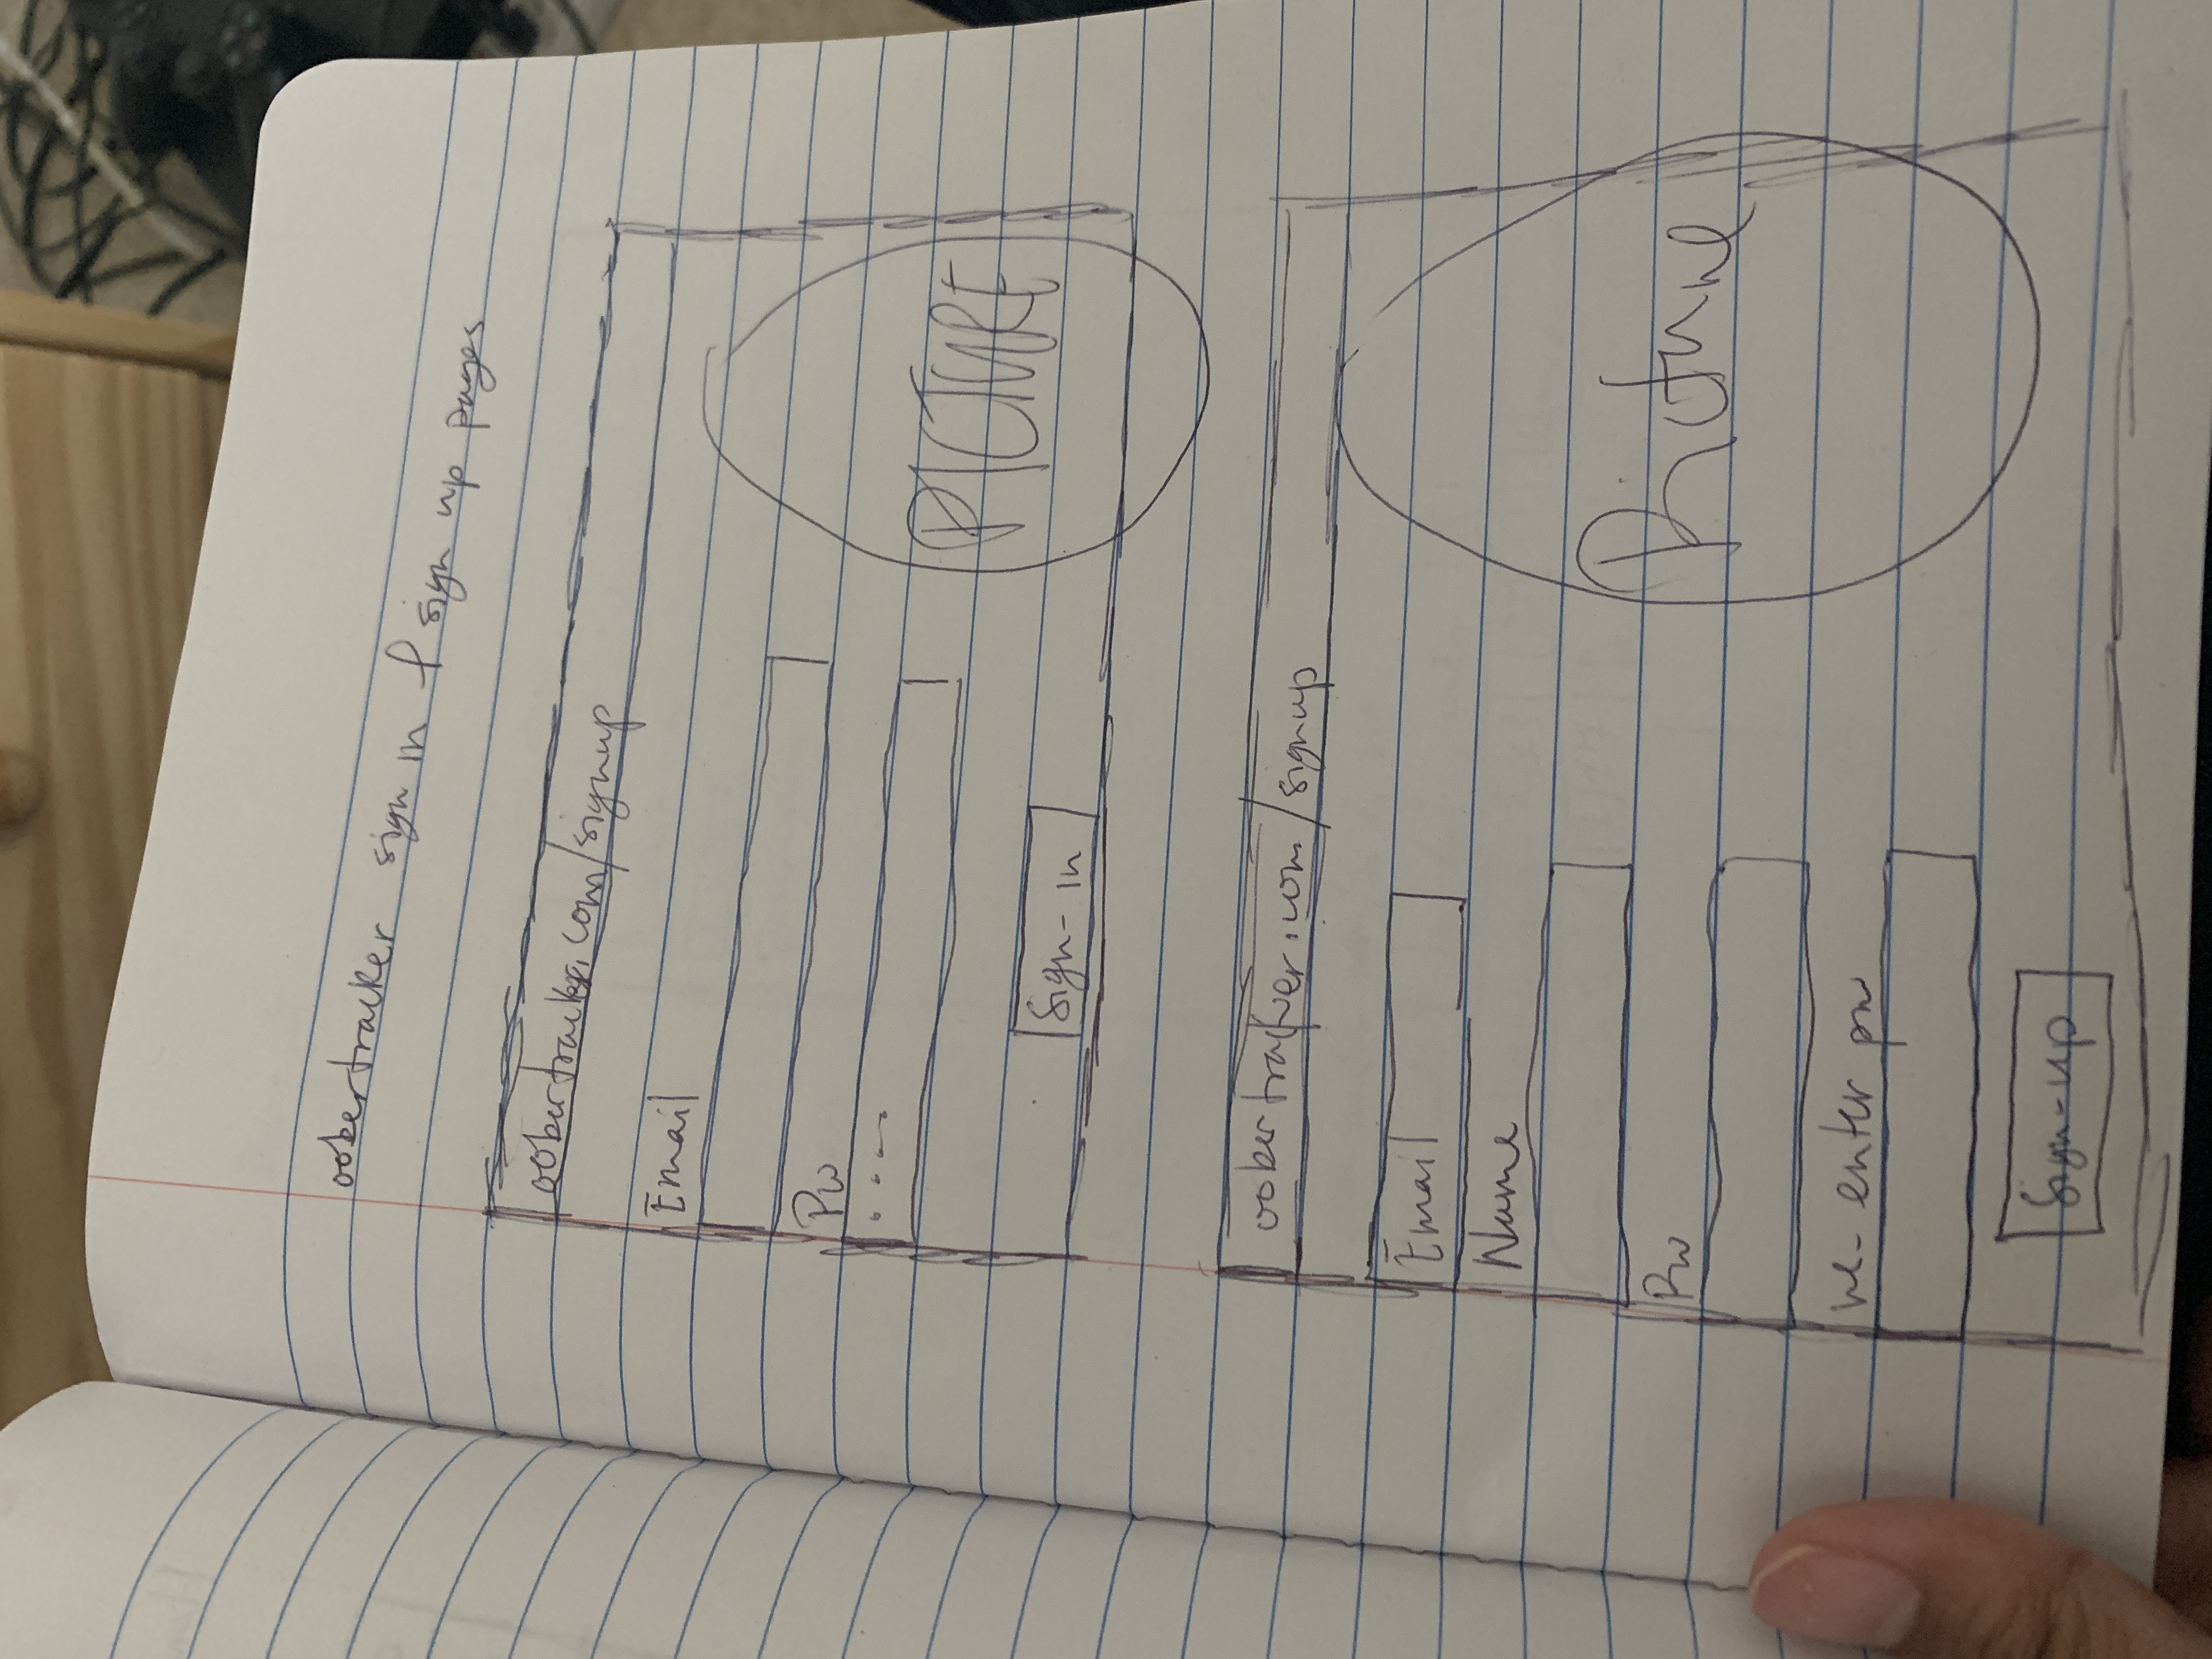 oobertracker sign in & sign up pages
oobertracker.com/signup
Email
Pw
....
Sign-in
PICTURE
oobertracker.com/signup
Email
Name
Pw
re-enter pw
Sign-up
Picture